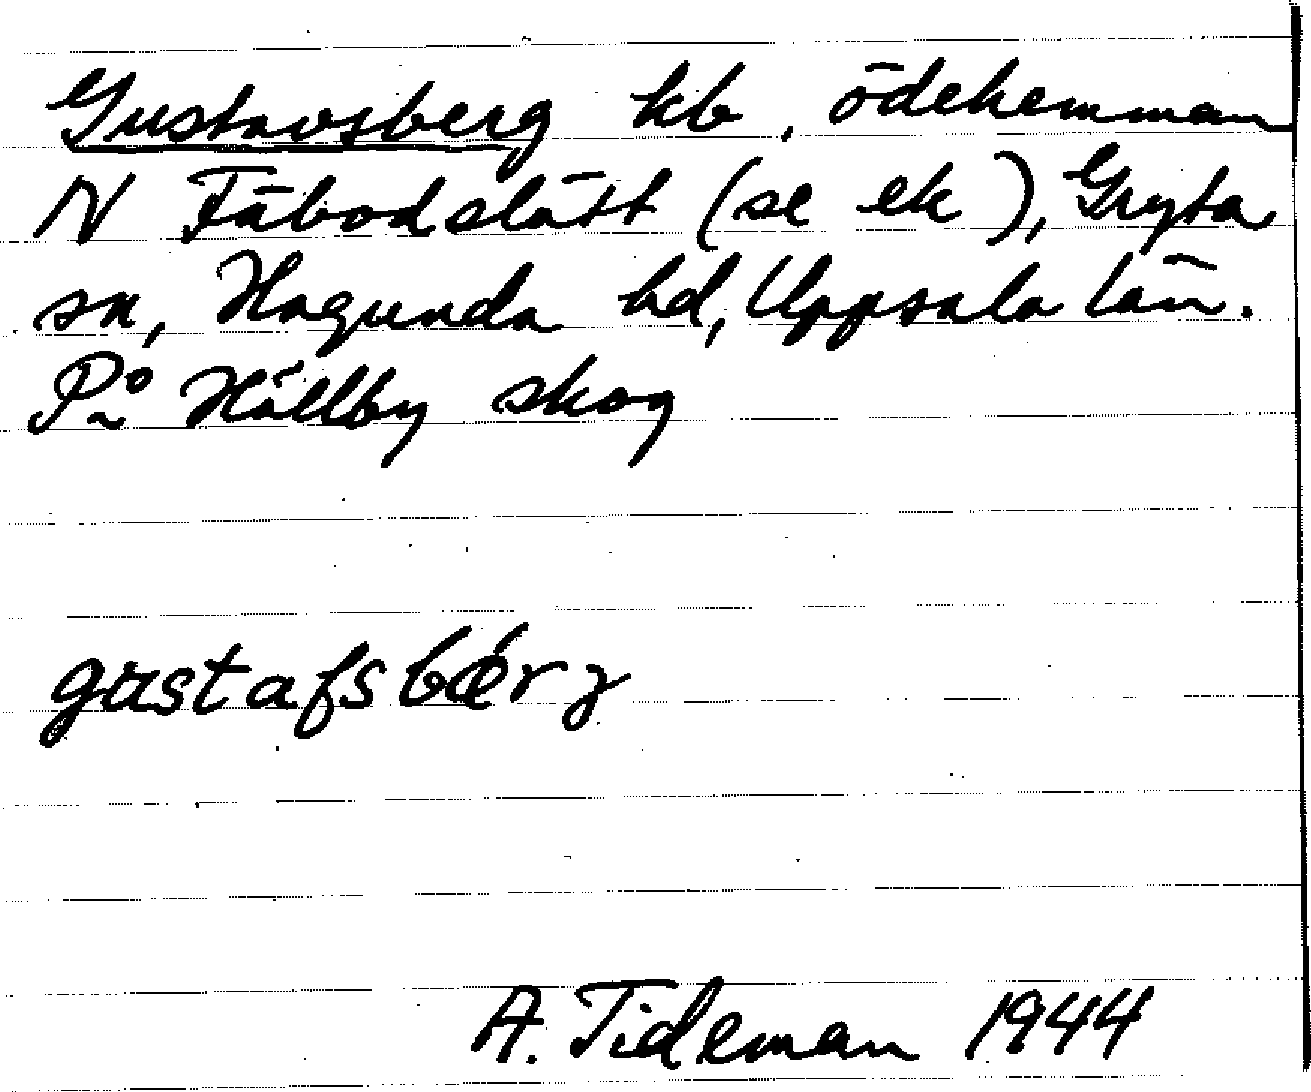 Gustavsberg hb, ödehemman
N Fäbodslätt (se ek), Gryta
sn, Hagunda hd, Uppsala län.
På Hällby skog
gustafsbérg
A. Tideman 1944